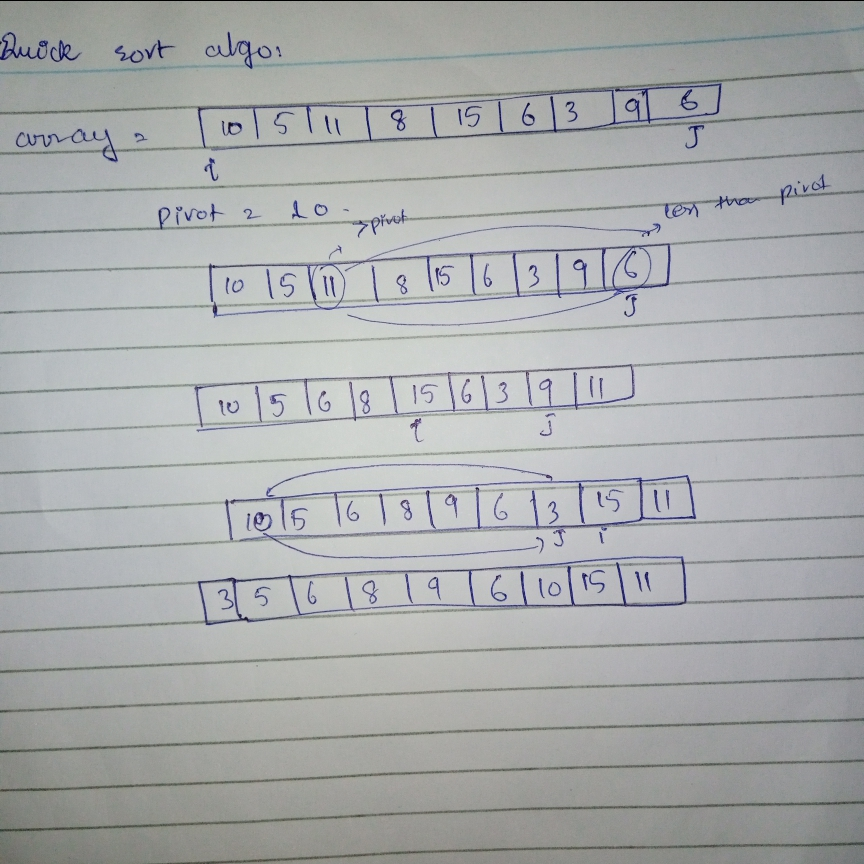 Quick sort algo:
array = 10 5 11 8 15 6 3 9 6
i J
Pivot = 10 > pivot less than pivot
10 5 11 8 15 6 3 9 6
J
10 5 6 8 15 6 3 9 11
i J
10 5 6 8 9 6 3 15 11
J i
3 5 6 8 9 6 10 15 11